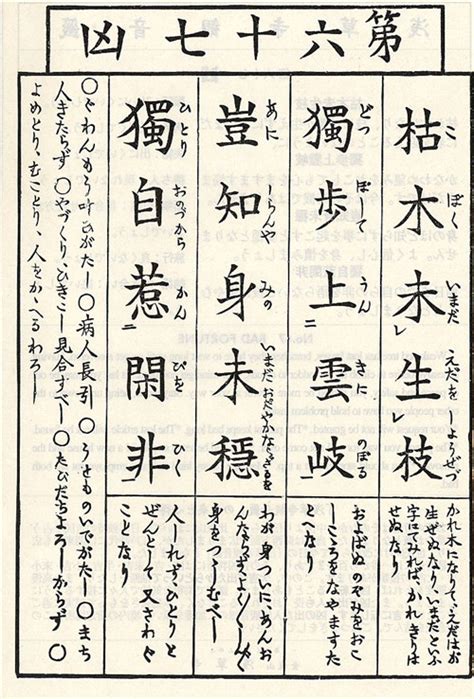 第六十七凶
枯木未生枝
こ ぼく いまだ えだを しょうぜづ
かれ木になりて、えだはが
生ぜぬなり、いまだといふ
字にてみれば、かれきりは
せぬなり
獨歩上雲岐
どつ ぽて うん きに のぼる
およばぬのぞみをおこ
しこころをなやますた
とへなり
豈知身未穏
あに しらんや みの いまだおだやかならざるを
わが身つゝに、あんお
身をつゝしむべし
獨自惹閑非
ひとり おのづから かん ぴを ひく
人しれず、ひとりと
ぜんとして又さわぐ
ことなり
○ぐわんもう叶ひがたし○病人長引○うせものいでがたし○まち
人きたらず○やづくり、ひきこし見合すべし○たびだちよろしからず○
よめとり、むことり、人をかゝへるわろし